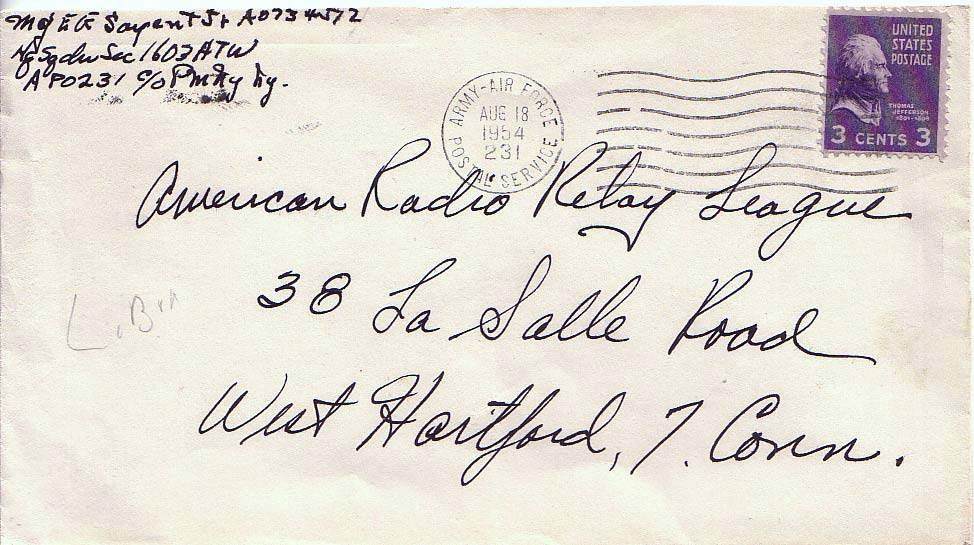 Maj E E Sargent Jr AO734572
Hq Sqdn Sec 1603 ATW
APO 231 c/o PM NY NY.
ARMY-AIR FORCE
AUG 18
1954
231
POSTAL SERVICE
UNITED
STATES
POSTAGE
THOMAS
JEFFERSON
1801-1809
3 CENTS 3
American Radio Relay League
38 La Salle Road
West Hartford, 7. Conn.